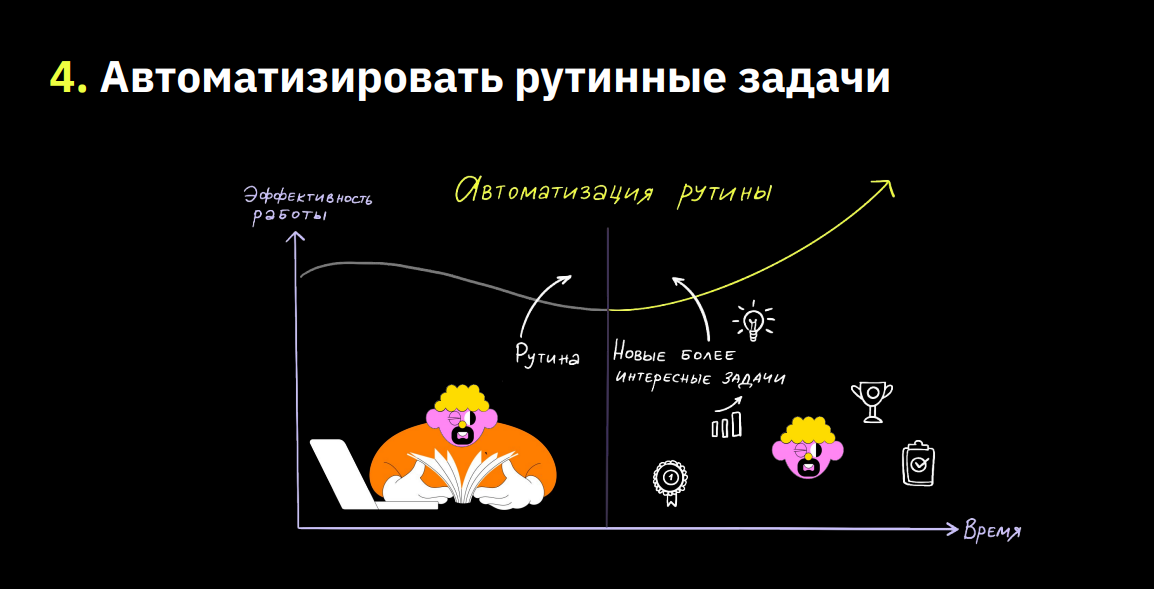 4. Автоматизировать рутинные задачи
Эффективность
работы
Автоматизация рутины
Рутина
Новые более
интересные задачи
1
Время